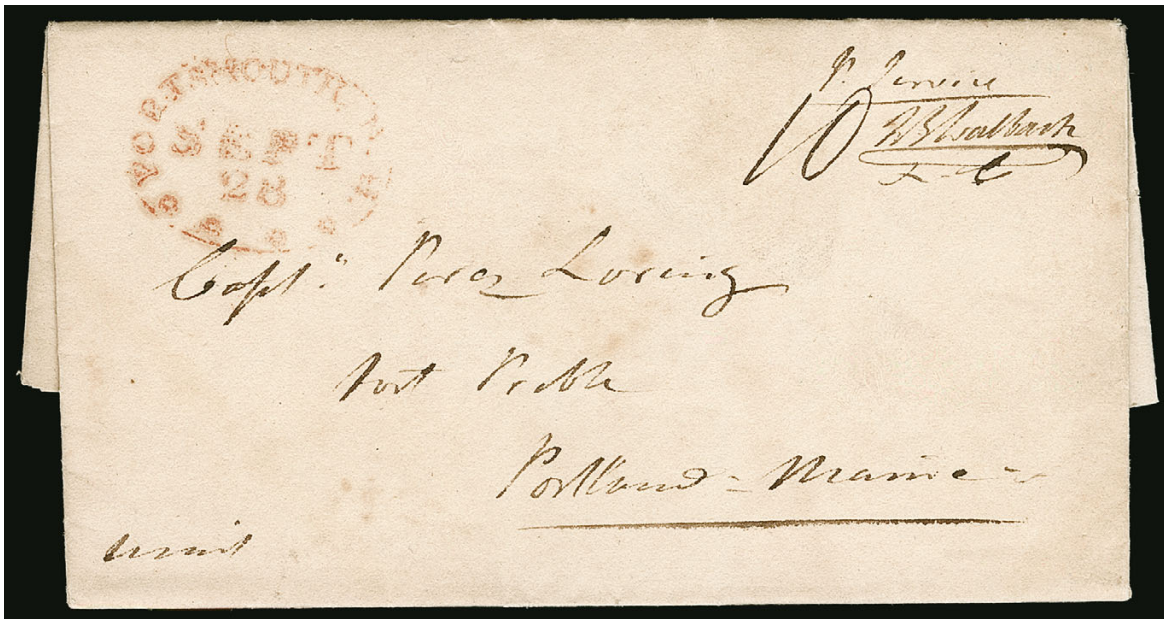 PORTSMOUTH. N.H.
SEPT
28
P. Service
10
JBWalbach
Capt. Perez Loring
Fort Preble
Portland - Maine